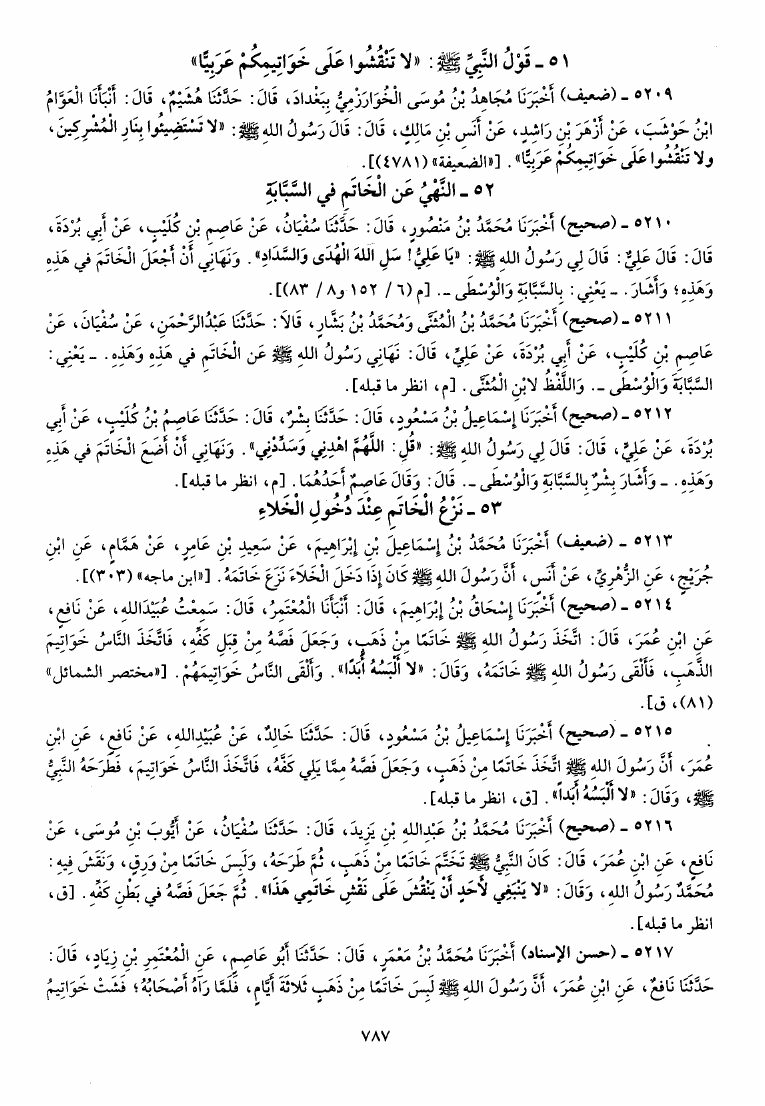 ٥١ ـ قَوْلُ النَّبِيِّ ﷺ: «لا تَنْقُشُوا عَلَى خَوَاتِيمِكُمْ عَرَبِيًّا»
٥٢٠٩ ـ (ضعيف) أَخْبَرَنَا مُجَاهِدُ بْنُ مُوسَى الْخُوَارَزْمِيُّ بِبَغْدَادَ، قَالَ: حَدَّثَنَا هُشَيْمٌ، قَالَ: أَنْبَأَنَا الْعَوَّامُ
ابْنُ حَوْشَبَ، عَنْ أَزْهَرَ بْنِ رَاشِدٍ، عَنْ أَنَسِ بْنِ مَالِكٍ، قَالَ: قَالَ رَسُولُ اللهِ ﷺ: «لا تَسْتَضِيئُوا بِنَارِ الْمُشْرِكِينَ،
ولا تَنْقُشُوا عَلَى خَوَاتِيمِكُمْ عَرَبِيًّا». [«الضعيفة» (٤٧٨١)].
٥٢ ـ النَّهْيُ عَنِ الْخَاتَمِ في السَّبَّابَةِ
٥٢١٠ ـ (صحيح) أَخْبَرَنَا مُحَمَّدُ بْنُ مَنْصُورٍ، قَالَ: حَدَّثَنَا سُفْيَانُ، عَنْ عَاصِمِ بْنِ كُلَيْبٍ، عَنْ أَبِي بُرْدَةَ،
قَالَ: قَالَ عَلِيٌّ: قَالَ لِي رَسُولُ اللهِ ﷺ: «يَا عَلِيُّ! سَلِ اللهَ الْهُدَى وَالسَّدَادِ». وَنَهَانِي أَنْ أَجْعَلَ الْخَاتَمَ في هَذِهِ
وَهَذِهِ؛ وَأَشَارَ. ـ يَعْنِي: بِالسَّبَّابَةِ وَالْوُسْطَى ـ. [م (٦ / ١٥٢ و٨ / ٨٣)].
٥٢١١ ـ (صحيح) أَخْبَرَنَا مُحَمَّدُ بْنُ الْمُثَنَّى وَمُحَمَّدُ بْنُ بَشَّارٍ، قَالَا: حَدَّثَنَا عَبْدُالرَّحْمَنِ، عَنْ سُفْيَانَ، عَنْ
عَاصِمِ بْنِ كُلَيْبٍ، عَنْ أَبِي بُرْدَةَ، عَنْ عَلِيٍّ، قَالَ: نَهَانِي رَسُولُ اللهِ ﷺ عَنِ الْخَاتَمِ في هَذِهِ وَهَذِهِ. ـ يَعْنِي:
السَّبَّابَةَ وَالْوُسْطَى ـ. وَاللَّفْظُ لابْنِ الْمُثَنَّى. [م، انظر ما قبله].
٥٢١٢ ـ (صحيح) أَخْبَرَنَا إِسْمَاعِيلُ بْنُ مَسْعُودٍ، قَالَ: حَدَّثَنَا بِشْرٌ، قَالَ: حَدَّثَنَا عَاصِمُ بْنُ كُلَيْبٍ، عَنْ أَبِي
بُرْدَةَ، عَنْ عَلِيٍّ، قَالَ: قَالَ لِي رَسُولُ اللهِ ﷺ: «قُلِ: اللَّهُمَّ اهْدِنِي وَسَدِّدْنِي». وَنَهَانِي أَنْ أَضَعَ الْخَاتَمَ في هَذِهِ
وَهَذِهِ. ـ وَأَشَارَ بِشْرٌ بِالسَّبَّابَةِ وَالْوُسْطَى ـ. قَالَ: وَقَالَ عَاصِمٌ أَحَدُهُمَا. [م، انظر ما قبله].
٥٣ ـ نَزْعُ الْخَاتَمِ عِنْدَ دُخُولِ الْخَلَاءِ
٥٢١٣ ـ (ضعيف) أَخْبَرَنَا مُحَمَّدُ بْنُ إِسْمَاعِيلَ بْنِ إِبْرَاهِيمَ، عَنْ سَعِيدِ بْنِ عَامِرٍ، عَنْ هَمَّامٍ، عَنِ ابْنِ
جُرَيْجٍ، عَنِ الزُّهْرِيِّ، عَنْ أَنَسٍ، أَنَّ رَسُولَ اللهِ ﷺ كَانَ إِذَا دَخَلَ الْخَلَاءَ نَزَعَ خَاتَمَهُ. [«ابن ماجه» (٣٠٣)].
٥٢١٤ ـ (صحيح) أَخْبَرَنَا إِسْحَاقُ بْنُ إِبْرَاهِيمَ، قَالَ: أَنْبَأَنَا الْمُعْتَمِرُ، قَالَ: سَمِعْتُ عُبَيْدَاللهِ، عَنْ نَافِعٍ،
عَنِ ابْنِ عُمَرَ، قَالَ: اتَّخَذَ رَسُولُ اللهِ ﷺ خَاتَمًا مِنْ ذَهَبٍ، وَجَعَلَ فَصَّهُ مِنْ قِبَلِ كَفِّهِ، فَاتَّخَذَ النَّاسُ خَوَاتِيمَ
الذَّهَبِ، فَأَلْقَى رَسُولُ اللهِ ﷺ خَاتَمَهُ، وَقَالَ: «لا أَلْبَسُهُ أَبَدًا». وَأَلْقَى النَّاسُ خَوَاتِيمَهُمْ. [«مختصر الشمائل»
(٨١)، ق].
٥٢١٥ ـ (صحيح) أَخْبَرَنَا إِسْمَاعِيلُ بْنُ مَسْعُودٍ، قَالَ: حَدَّثَنَا خَالِدٌ، عَنْ عُبَيْدِاللهِ، عَنْ نَافِعٍ، عَنِ ابْنِ
عُمَرَ، أَنَّ رَسُولَ اللهِ ﷺ اتَّخَذَ خَاتَمًا مِنْ ذَهَبٍ، وَجَعَلَ فَصَّهُ مِمَّا يَلِي كَفَّهُ، فَاتَّخَذَ النَّاسُ خَوَاتِيمَ، فَطَرَحَهُ النَّبِيُّ
ﷺ، وَقَالَ: «لا أَلْبَسُهُ أَبَداً». [ق، انظر ما قبله].
٥٢١٦ ـ (صحيح) أَخْبَرَنَا مُحَمَّدُ بْنُ عَبْدِاللهِ بْنِ يَزِيدَ، قَالَ: حَدَّثَنَا سُفْيَانُ، عَنْ أَيُّوبَ بْنِ مُوسَى، عَنْ
نَافِعٍ، عَنِ ابْنِ عُمَرَ، قَالَ: كَانَ النَّبِيُّ ﷺ تَخَتَّمَ خَاتَمًا مِنْ ذَهَبٍ، ثُمَّ طَرَحَهُ، وَلَبِسَ خَاتَمًا مِنْ وَرِقٍ، وَنَقَشَ فِيهِ:
مُحَمَّدٌ رَسُولُ اللهِ، وَقَالَ: «لا يَنْبَغِي لأَحَدٍ أَنْ يَنْقُشَ عَلَى نَقْشِ خَاتَمِي هَذَا». ثُمَّ جَعَلَ فَصَّهُ في بَطْنِ كَفِّهِ. [ق،
انظر ما قبله].
٥٢١٧ ـ (حسن الإسناد) أَخْبَرَنَا مُحَمَّدُ بْنُ مَعْمَرٍ، قَالَ: حَدَّثَنَا أَبُو عَاصِمٍ، عَنِ الْمُعْتَمِرِ بْنِ زِيَادٍ، قَالَ:
حَدَّثَنَا نَافِعٌ، عَنِ ابْنِ عُمَرَ، أَنَّ رَسُولَ اللهِ ﷺ لَبِسَ خَاتَمًا مِنْ ذَهَبٍ ثَلَاثَةَ أَيَّامٍ، فَلَمَّا رَآهُ أَصْحَابُهُ؛ فَشَتْ خَوَاتِيمُ
٧٨٧